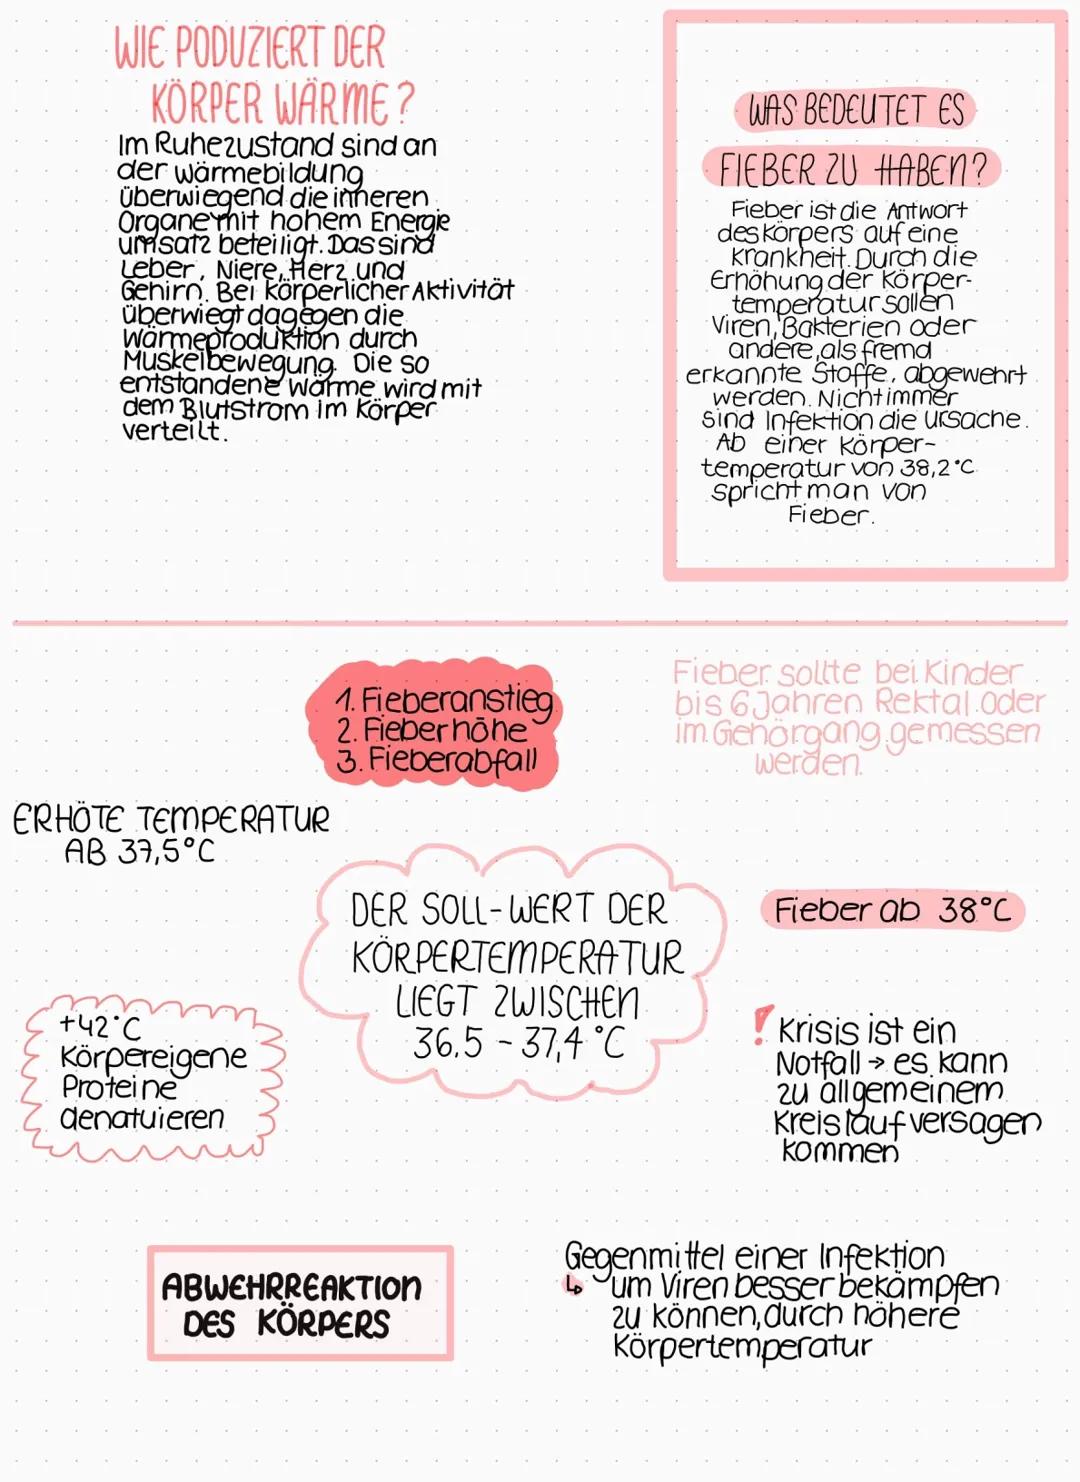 WIE PODUZIERT DER
KÖRPER WÄRME?
Im Ruhezustand sind an
der wärmebildung
überwiegend die inneren
Organe mit hohem Energie
umsatz beteiligt. Das sind
Leber, Niere, Herz und
Gehirn. Bei körperlicher Aktivität
überwiegt dagegen die
Wärmeproduktion durch
Muskelbewegung. Die so
entstandene Wärme wird mit
dem Blutstrom im Körper
verteilt.
WAS BEDEUTET ES
FIEBER ZU HABEN?
Fieber ist die Antwort
des Körpers auf eine
Krankheit. Durch die
Erhöhung der Körper-
temperatur sollen
Viren, Bakterien oder
andere, als fremd
erkannte Stoffe, abgewehrt
werden. Nicht immer
sind Infektion die Ursache.
Ab einer Körper-
temperatur von 38,2°C
spricht man von
Fieber.
1. Fieberanstieg
2. Fieberhöhe
3. Fieberabfall
Fieber sollte bei Kinder
bis 6 Jahren Rektal oder
im Gehörgang gemessen
werden.
ERHÖTE TEMPERATUR
AB 37,5°C
DER SOLL-WERT DER
KÖRPERTEMPERATUR
LIEGT ZWISCHEN
36.5 - 37,4 °C
Fieber ab 38°C
+42°C
Körpereigene
Proteine
denatuieren
! Krisis ist ein
Notfall → es kann
zu allgemeinem
Kreislaufversagen
kommen
ABWEHRREAKTION
DES KÖRPERS
Gegenmittel einer Infektion
↳ um Viren besser bekämpfen
zu können, durch höhere
Körpertemperatur